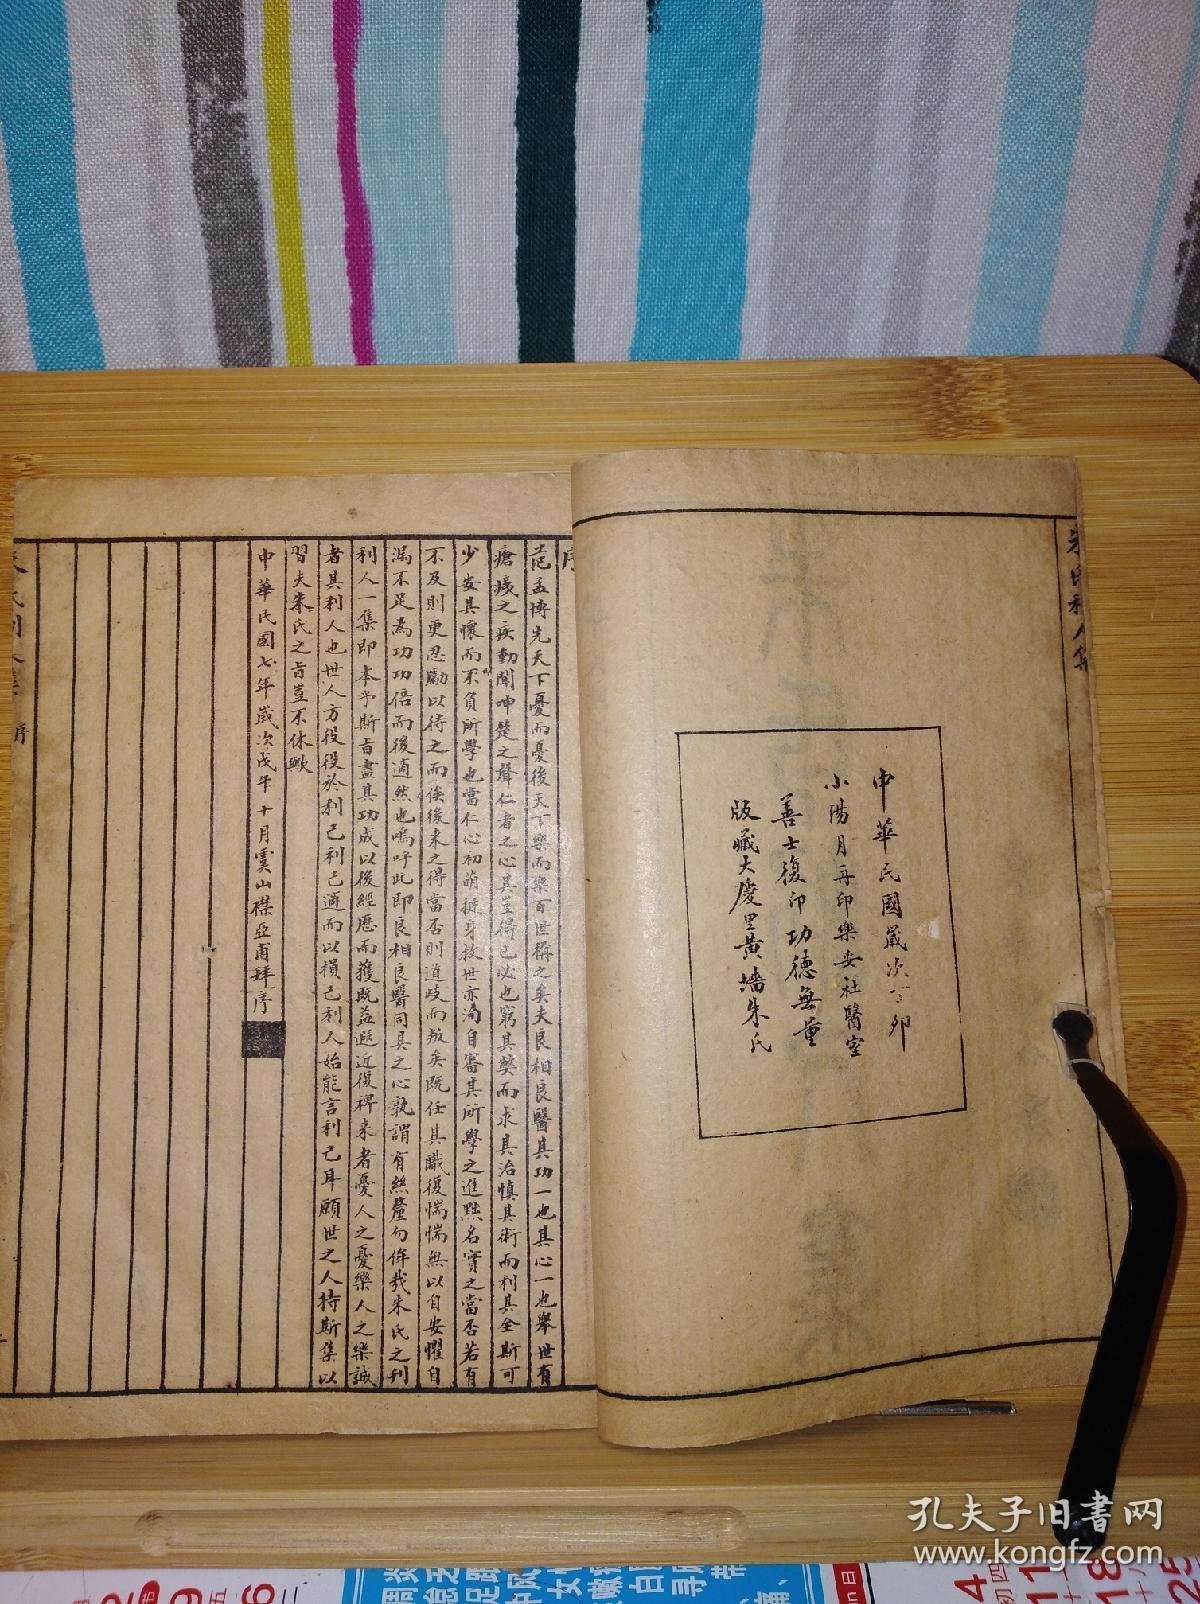 朱氏利人集
中華民國歲次丁卯
小陽月再印樂安社醫室
善士復印功德無量
版藏大慶里黃墻朱氏
序
范孟博先天下憂而憂後天下樂而樂百世稱之矣夫良相良醫其功一也其心一也舉世有
瘡痍之疾動聞呻楚之聲仁者之心其豈得已必也窮其獘而求其治慎其術而利其全斯可
少安其懷而不負所學也當仁心初萌挺身救世亦須自審其所學之進點名實之當否若有
不及則更忍勵以待之而俟後來之得當否則道歧而叛矣既任其職復惴惴無以自安懼自
滿不足為功功倍而後適然也嗚呼此即良相良醫同具之心孰謂有絲釐勿侔哉朱氏之刊
利人一集即本乎斯旨盡其功成以後經歷而獲既益遐近復裨來者憂人之憂樂人之樂誠
者其利人也世人方役役於利己利己適而以損己利人始能言利己耳願世之人持斯集以
習夫朱氏之旨豈不休歟
中華民國七年歲次戊午十月虞山 亞甫拜序
序
孔夫子旧书网
www.kongfz.com